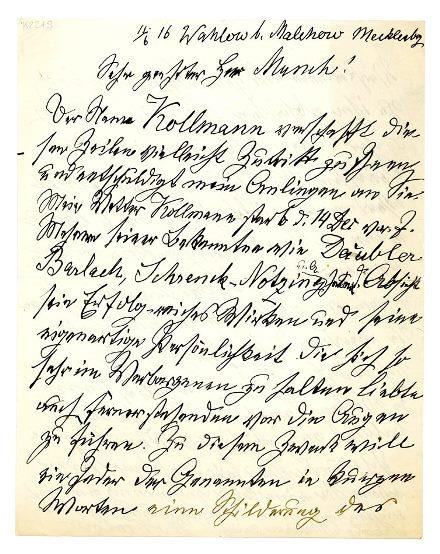 K2219
14/6 16 Wahlow b. Malchow Mecklenbg
Sehr geehrter Herr Munch!
Der Name Kollmann verschafft die-
sen Zeilen vielleicht Zutritt zu Ihnen
und entschuldigt mein Anliegen an Sie.
Mein Vetter Kollmann starb d. 14 Dec vor. J.
Mehrere seiner Bekannten wie Däubler
Barlach, Schrenck-Notzing haben d. Absicht
sein Erfolg-reiches Wirken und seine
eigenartige Persönlichkeit die sich so
sehr im Verborgenen zu halten liebte
auch Fernerstehenden vor die Augen
zu führen. Zu diesem Zweck will
ein Jeder der Genannten in kurzen
Worten eine Schilderung des